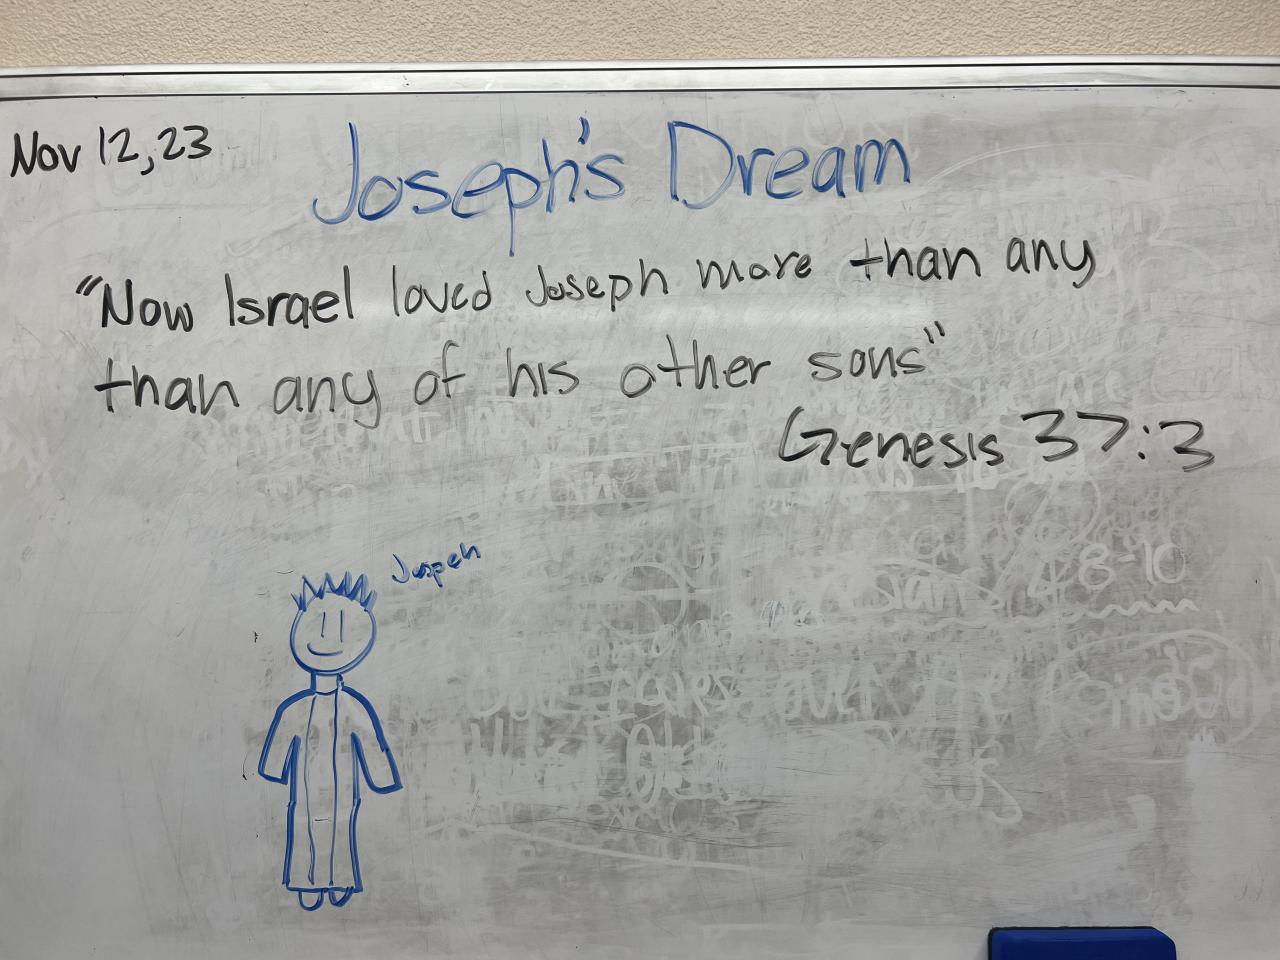 Nov 12, 23
Joseph's Dream
"Now Israel loved Joseph more than any
than any of his other sons"
Genesis 37:3
Juspeh
8-10